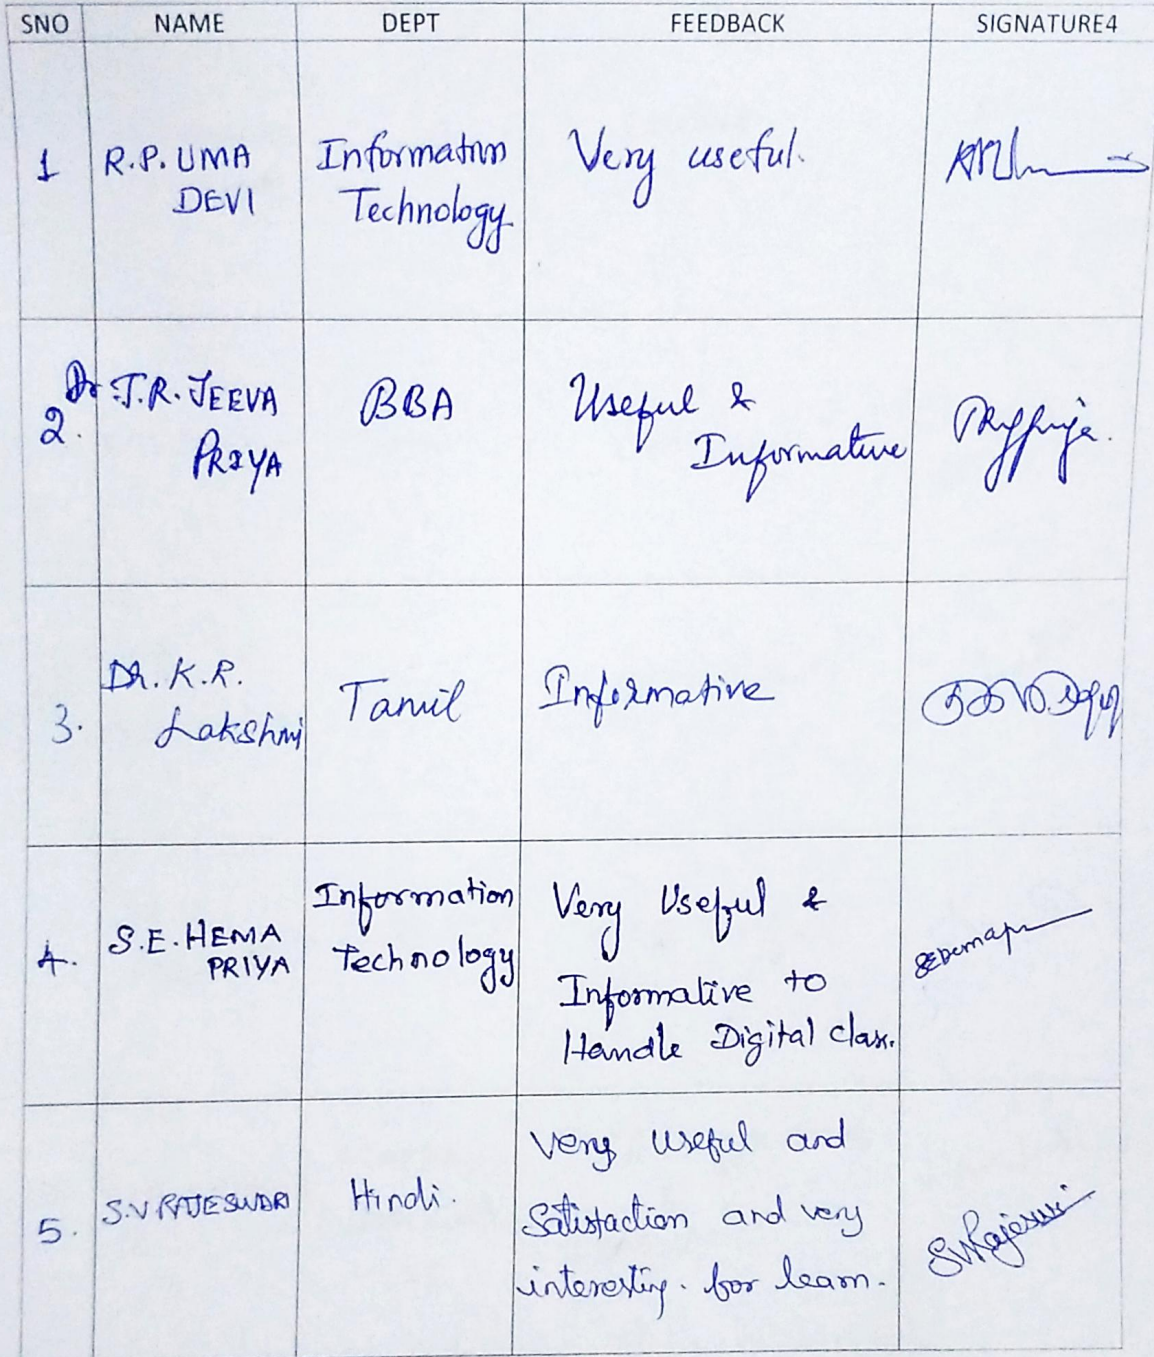 SNO NAME DEPT FEEDBACK SIGNATURE4
1 R.P. UMA DEVI
Information Technology
Very useful.
2. Dr J.R. JEEVA PRIYA
BBA
Useful &
Informative
3. Dr. K.R. Lakshmi
Tamil
Informative
4. S.E. HEMA PRIYA
Information Technology
Very Useful &
Informative to
Handle Digital class.
5. S.V RAJESWARI
Hindi.
Very Useful and
Satisfaction and very
interesting. for learn.
SVRajeswari